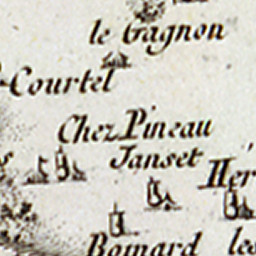 le Gagnon
Courtel
Chez Pineau
Janset
Hér
Bomard
les